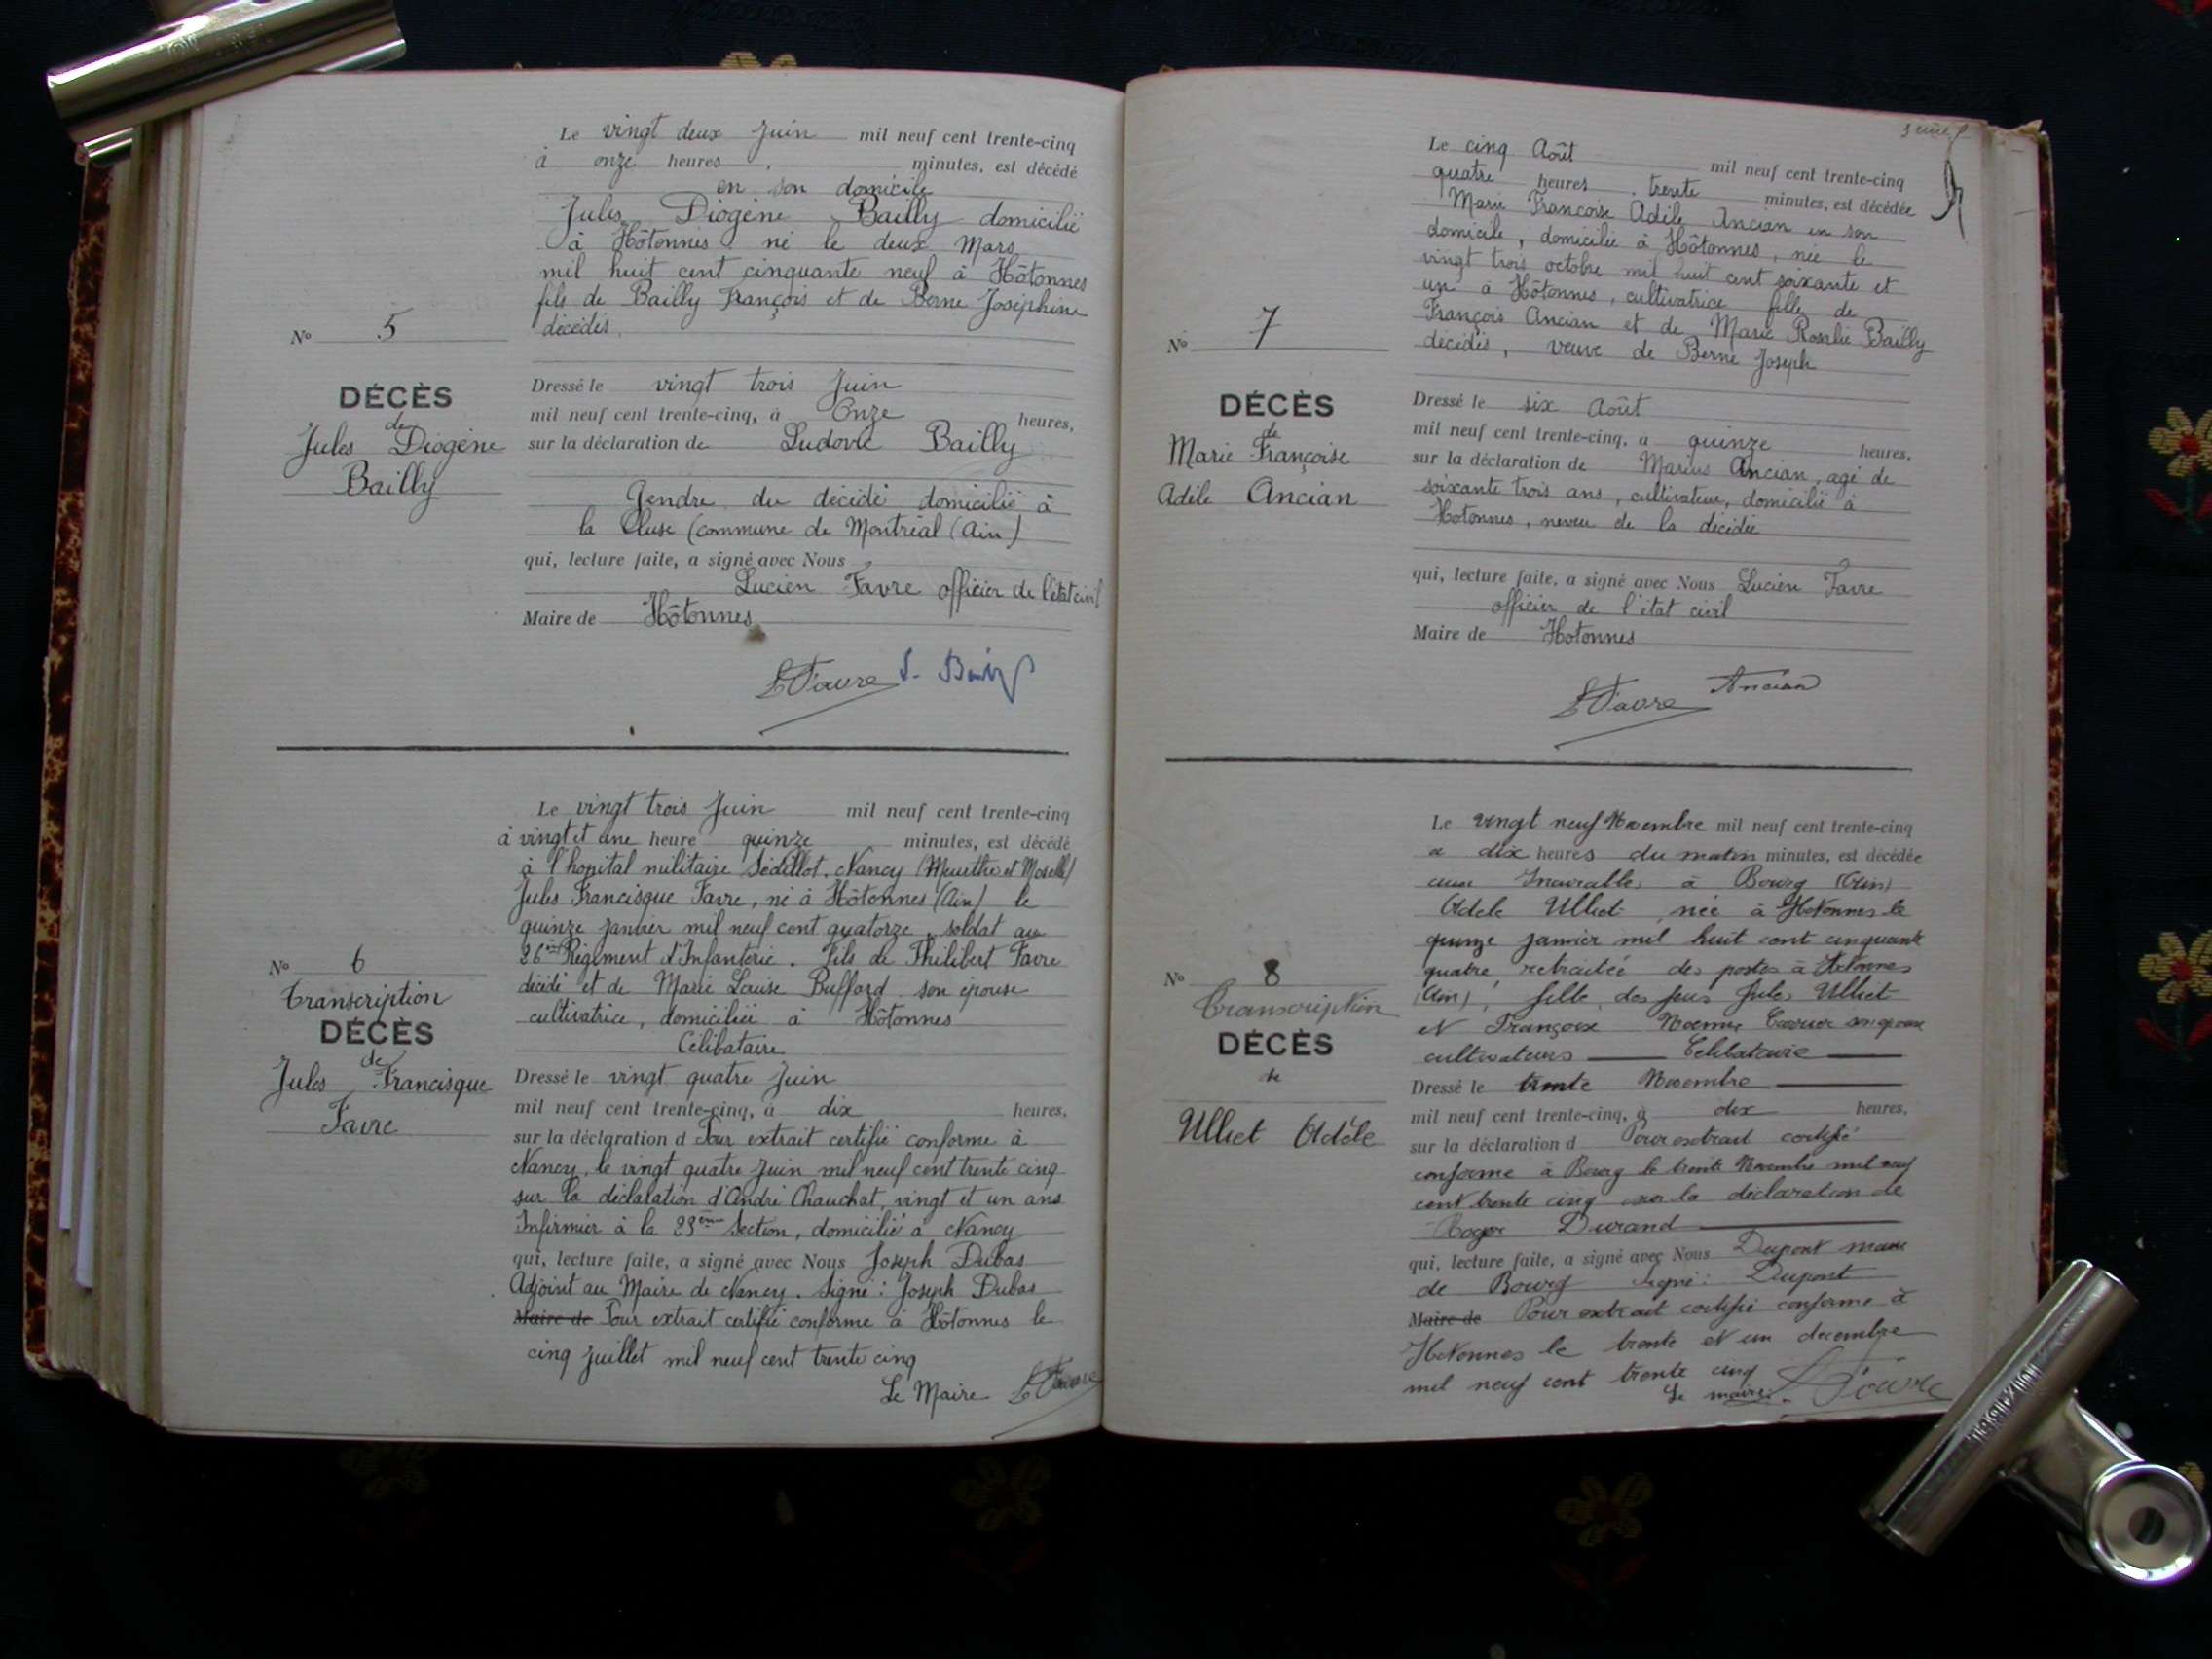 Le vingt deux Juin mil neuf cent trente-cinq
à onze heures minutes, est décédé
en son domicile
Jules Diogène Bailly domicilié
à Hôtonnes né le deux Mars
mil huit cent cinquante neuf à Hôtonnes
fils de Bailly François et de Berne Joséphine
décédés.
No 5
DÉCÈS
de
Jules Diogène
Bailly
Dressé le vingt trois Juin
mil neuf cent trente-cinq, à Onze heures,
sur la déclaration de Ludovic Bailly
Gendre du décédé domicilié à
la Cluse (commune de Montréal (Ain)
qui, lecture faite, a signé avec Nous
Lucien Favre officier de l'état civil
Maire de Hôtonnes
LFavre
Le vingt trois Juin mil neuf cent trente-cinq
à vingt et une heure quinze minutes, est décédé
à l'hopital militaire Sédillot. Nancy (Meurthe et Moselle)
Jules Francisque Favre, né à Hôtonnes (Ain) le
quinze janvier mil neuf cent quatorze, soldat au
26ème Régiment d'Infanterie. Fils de Philibert Favre
décédé et de Marie Louise Buffard son épouse
cultivatrice, domiciliée à Hôtonnes
Célibataire
No 6
Transcription
DÉCÈS
de
Jules Francisque
Favre
Dressé le vingt quatre Juin
mil neuf cent trente-cinq, à dix heures,
sur la déclaration d Pour extrait certifié conforme à
Nancy, le vingt quatre Juin mil neuf cent trente cinq
sur la déclaration d'André Chauchat, vingt et un ans
Infirmier à la 23ème Section, domicilié à Nancy
qui, lecture faite, a signé avec Nous Joseph Dubas
Adjoint au Maire de Nancy. Signé : Joseph Dubas
Maire de Pour extrait certifié conforme à Hôtonnes le
cinq juillet mil neuf cent trente cinq
Le Maire LFavre
Le cinq Août mil neuf cent trente-cinq
quatre heures trente minutes, est décédée
Marie Francoise Adèle Ancian en son
domicile, domiciliée à Hôtonnes, née le
vingt trois octobre mil huit cent soixante et
un à Hôtonnes, cultivatrice fille de
François Ancian et de Marie Rosalie Bailly
décédés, veuve de Berne Joseph
No 7
DÉCÈS
de
Marie Françoise
Adèle Ancian
Dressé le six Août
mil neuf cent trente-cinq, à quinze heures,
sur la déclaration de Marius Ancian, agé de
soixante trois ans, cultivateur, domicilié à
Hotonnes, neveu de la décédée
qui, lecture faite, a signé avec Nous Lucien Favre
officier de l'état civil
Maire de Hotonnes
LFavre Ancian
Le vingt neuf Novembre mil neuf cent trente-cinq
a dix heures du matin minutes, est décédée
aux Incurables à Bourg (Ain)
Adele Ulliet née à Hotonnes le
quinze janvier mil huit cent cinquante
quatre retraitée des postes à Hotonnes
(Ain), fille des feus Jules Ulliet
et Françoise Noemie son epouse
cultivateurs Celibataire
No 8
Transcription
DÉCÈS
de
Ulliet Adèle
Dressé le trente Novembre
mil neuf cent trente-cinq, à dix heures,
sur la déclaration d Pour extrait certifié
conforme à Bourg le trente Novembre mil neuf
cent trente cinq sur la déclaration de
Roger Durand
qui, lecture faite, a signé avec Nous Dupont maire
de Bourg signé : Dupont
Maire de Pour extrait certifié conforme à
Hotonnes le trente et un decembre
mil neuf cent trente cinq
Le maire. LFavre